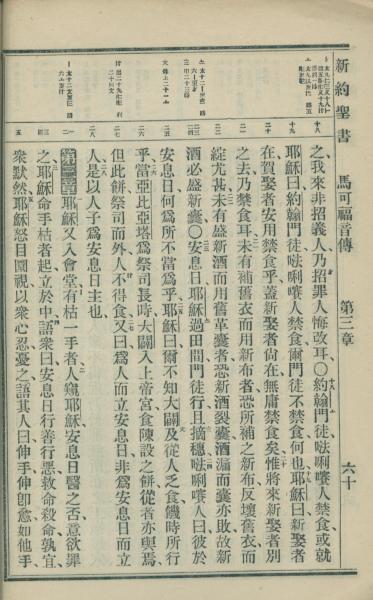 新約聖書 馬可福音傳 第三章 六十
之、我來非招義人、乃招罪人悔改耳○約翰門徒、𠵽唎㘔人禁食、或就
耶穌曰、約翰門徒、𠵽唎㘔人禁食、爾門徒不禁食、何也、耶穌曰、新娶者
在、賀娶者安用禁食乎、蓋新娶者尚在、無庸禁食矣、惟將來新娶者別
之去、乃禁食耳、未有補舊衣而用新布者、恐所補之新布、反壞舊衣、而
綻尤甚、未有盛新酒而用舊革囊者、恐新酒裂囊、酒漏而囊亦敗、故新
酒必盛新囊○安息日、耶穌過田間、門徒行且摘穗、𠵽唎㘔人曰、彼於
安息日、何爲所不當爲乎、耶穌曰、爾不知大闢及從人乏食饑時所行
乎、當亞比亞塔爲祭司長時、大闢入上帝宮、食陳設之餅、從者亦與焉、
但此餅、祭司而外、人不得食、又曰、爲人而立安息日、非爲安息日而立
人、是以人子爲安息日主也、
第三章 耶穌又入會堂、有枯一手者、人窺耶穌安息日醫之否、意欲罪
之、耶穌命手枯者起、立於中、語衆曰、安息日行善行惡、救命殺命、孰宜、
衆默然、耶穌怒目圜視、以衆心忍憂之、語其人曰、伸手、伸卽愈、如他手
十八
十九
二十
二一
二二
二三
二四
二五
二六
二七
二八
一二
三四
五